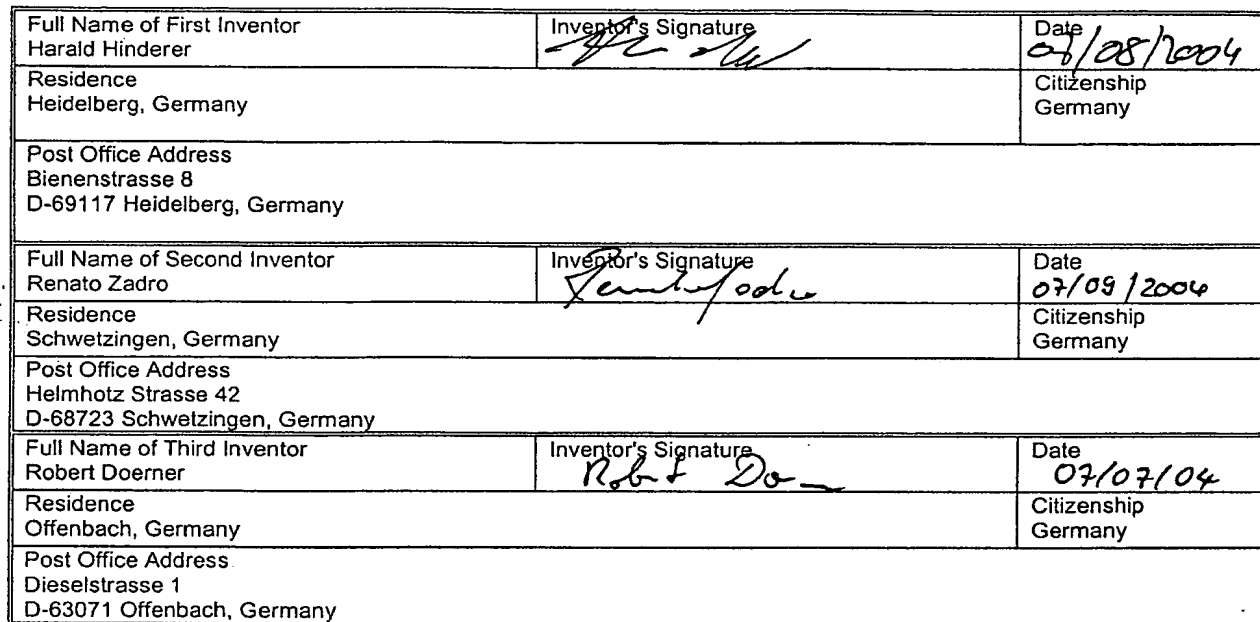 Full Name of First Inventor
Harald Hinderer
Inventor's Signature
Date
07/08/2004
Residence
Heidelberg, Germany
Citizenship
Germany
Post Office Address
Bienenstrasse 8
D-69117 Heidelberg, Germany
Full Name of Second Inventor
Renato Zadro
Inventor's Signature
Date
07/09/2004
Residence
Schwetzingen, Germany
Citizenship
Germany
Post Office Address
Helmhotz Strasse 42
D-68723 Schwetzingen, Germany
Full Name of Third Inventor
Robert Doerner
Inventor's Signature
Date
07/07/04
Residence
Offenbach, Germany
Citizenship
Germany
Post Office Address
Dieselstrasse 1
D-63071 Offenbach, Germany